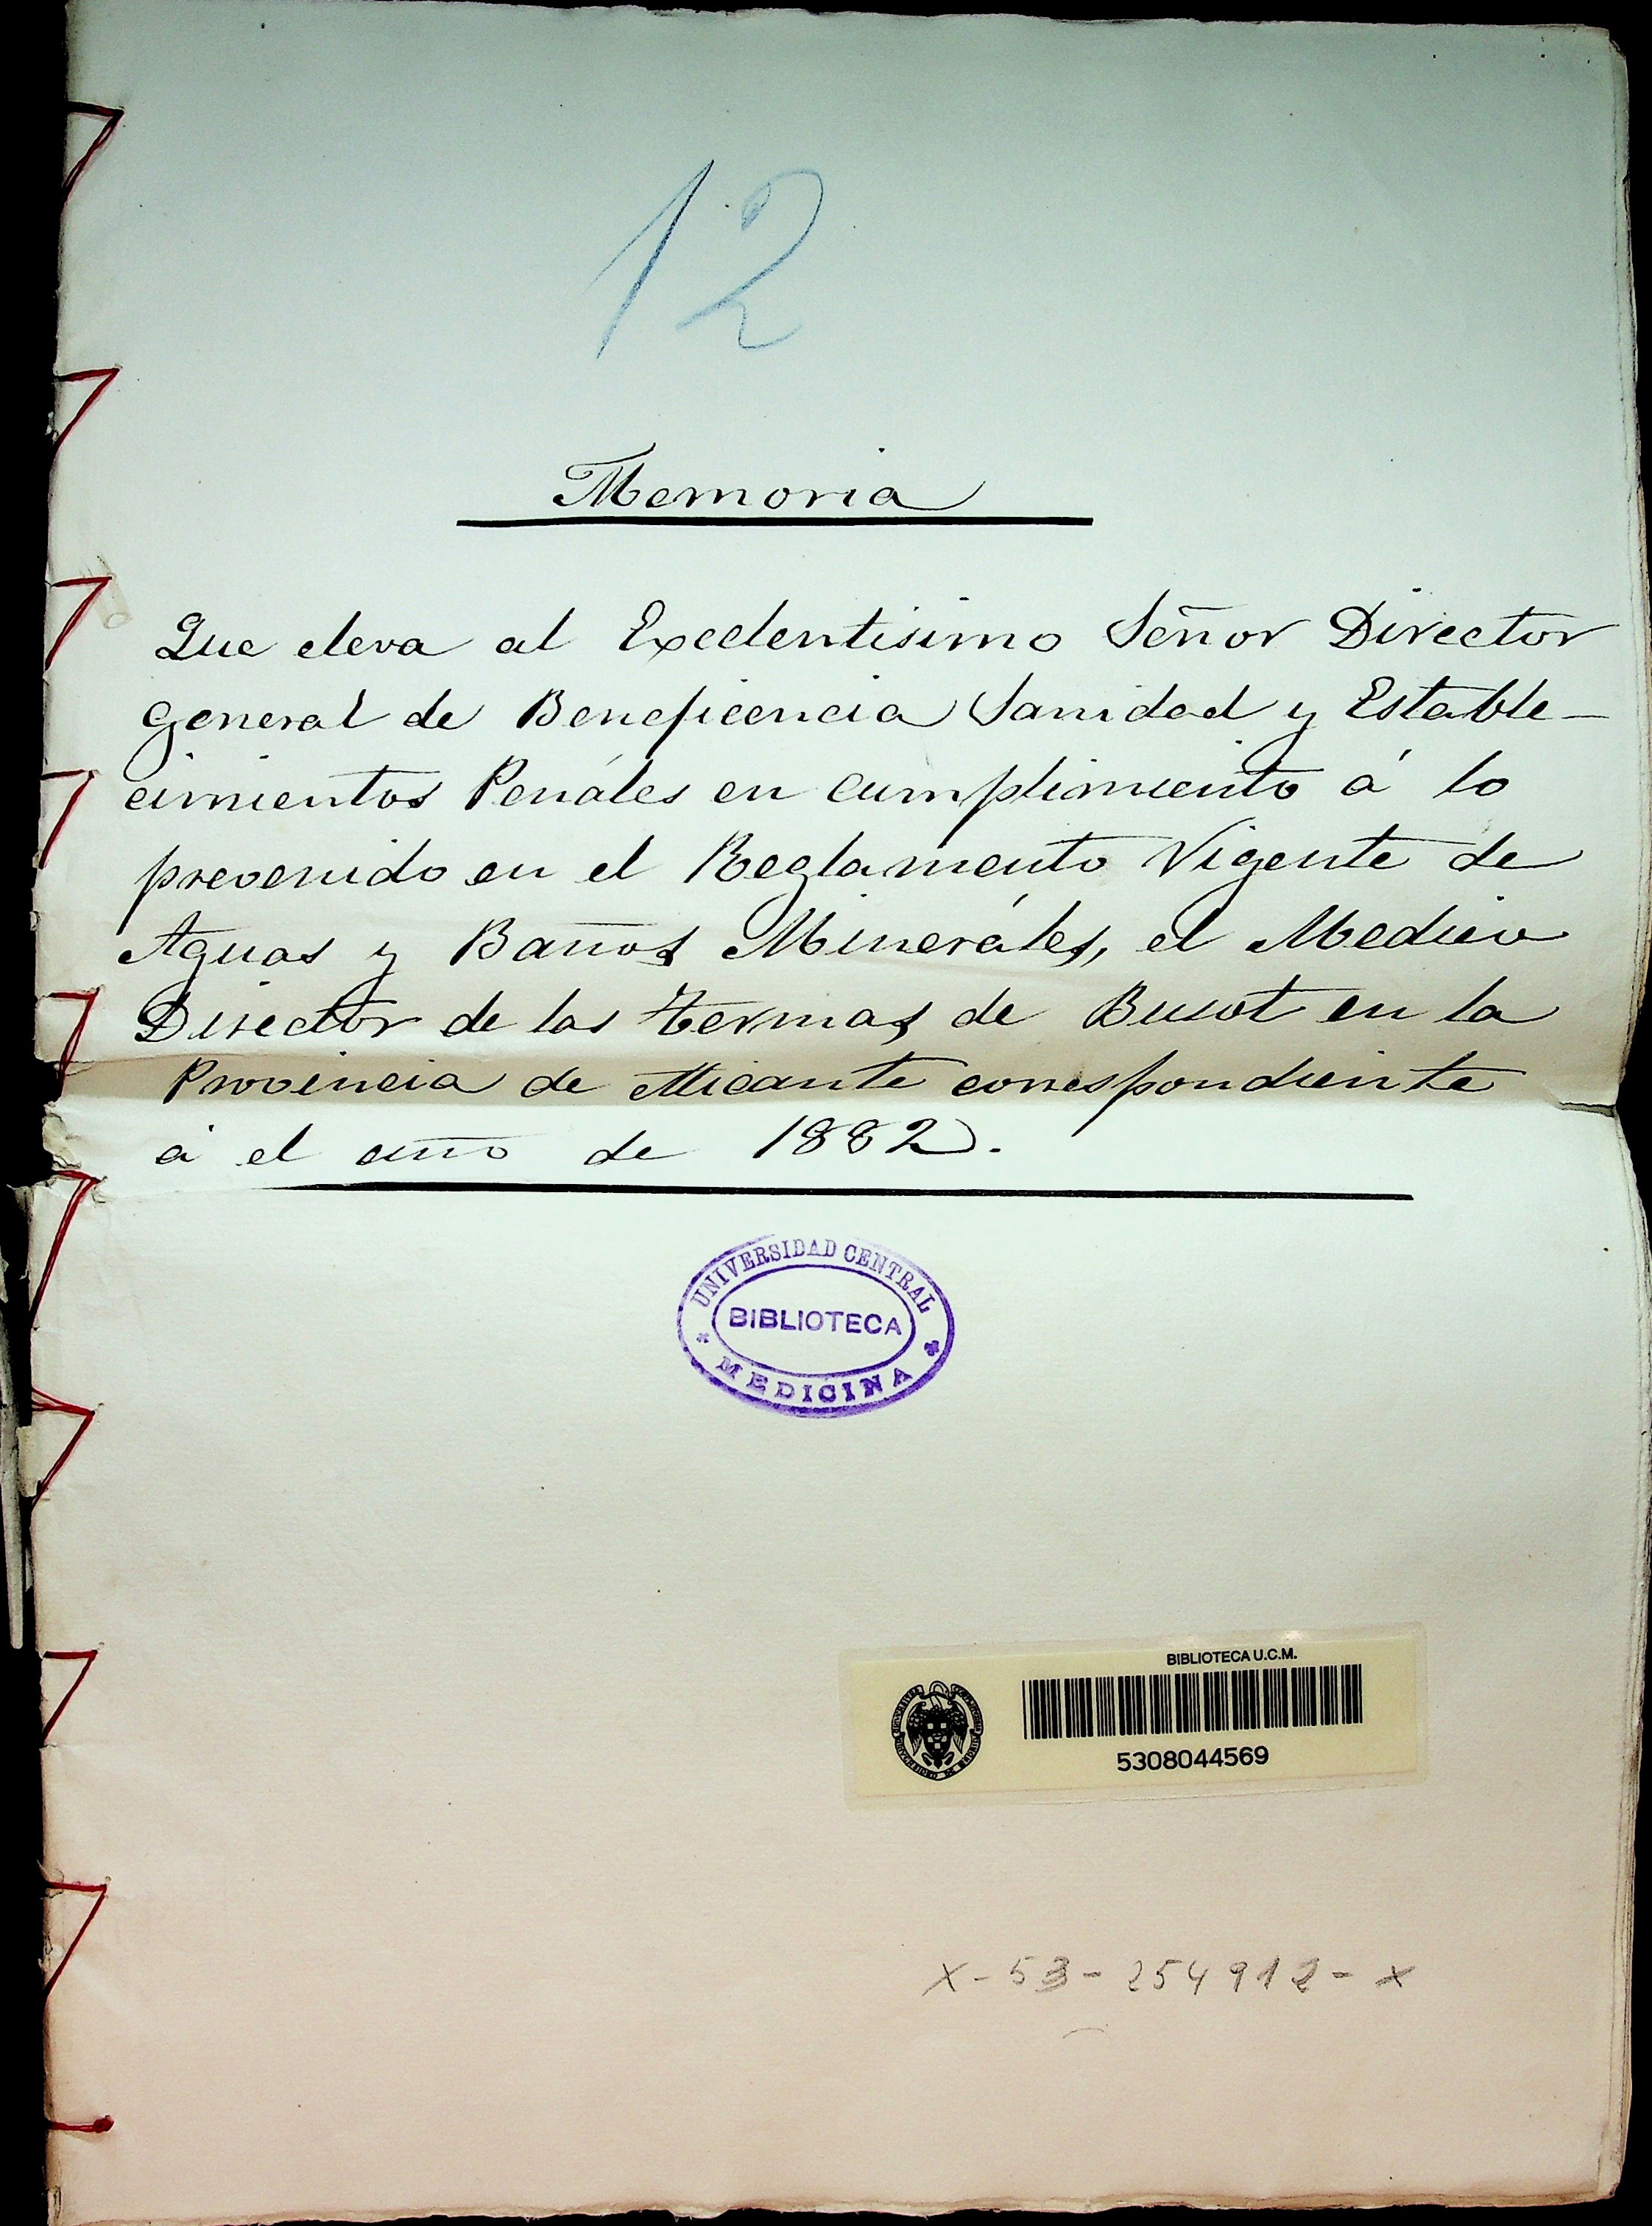 12
Memoria
Que eleva al Excelentisimo Señor Director
General de Beneficencia Sanidad y Estable-
cimientos Penáles en cumplimiento á lo
prevenido en el Reglamento Vigente de
Aguas y Baños Mineráles, el Medico
Director de las termas de Busot en la
Provincia de Alicante correspondiente
á el año de 1882.
UNIVERSIDAD CENTRAL
BIBLIOTECA
MEDICINA
BIBLIOTECA U.C.M.
5308044569
X-53-254912-X